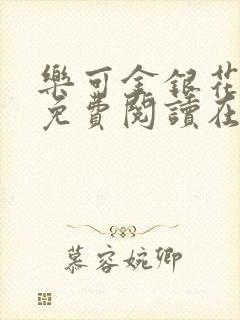 樂可金銀花
免費閱讀在
慕容婉卿